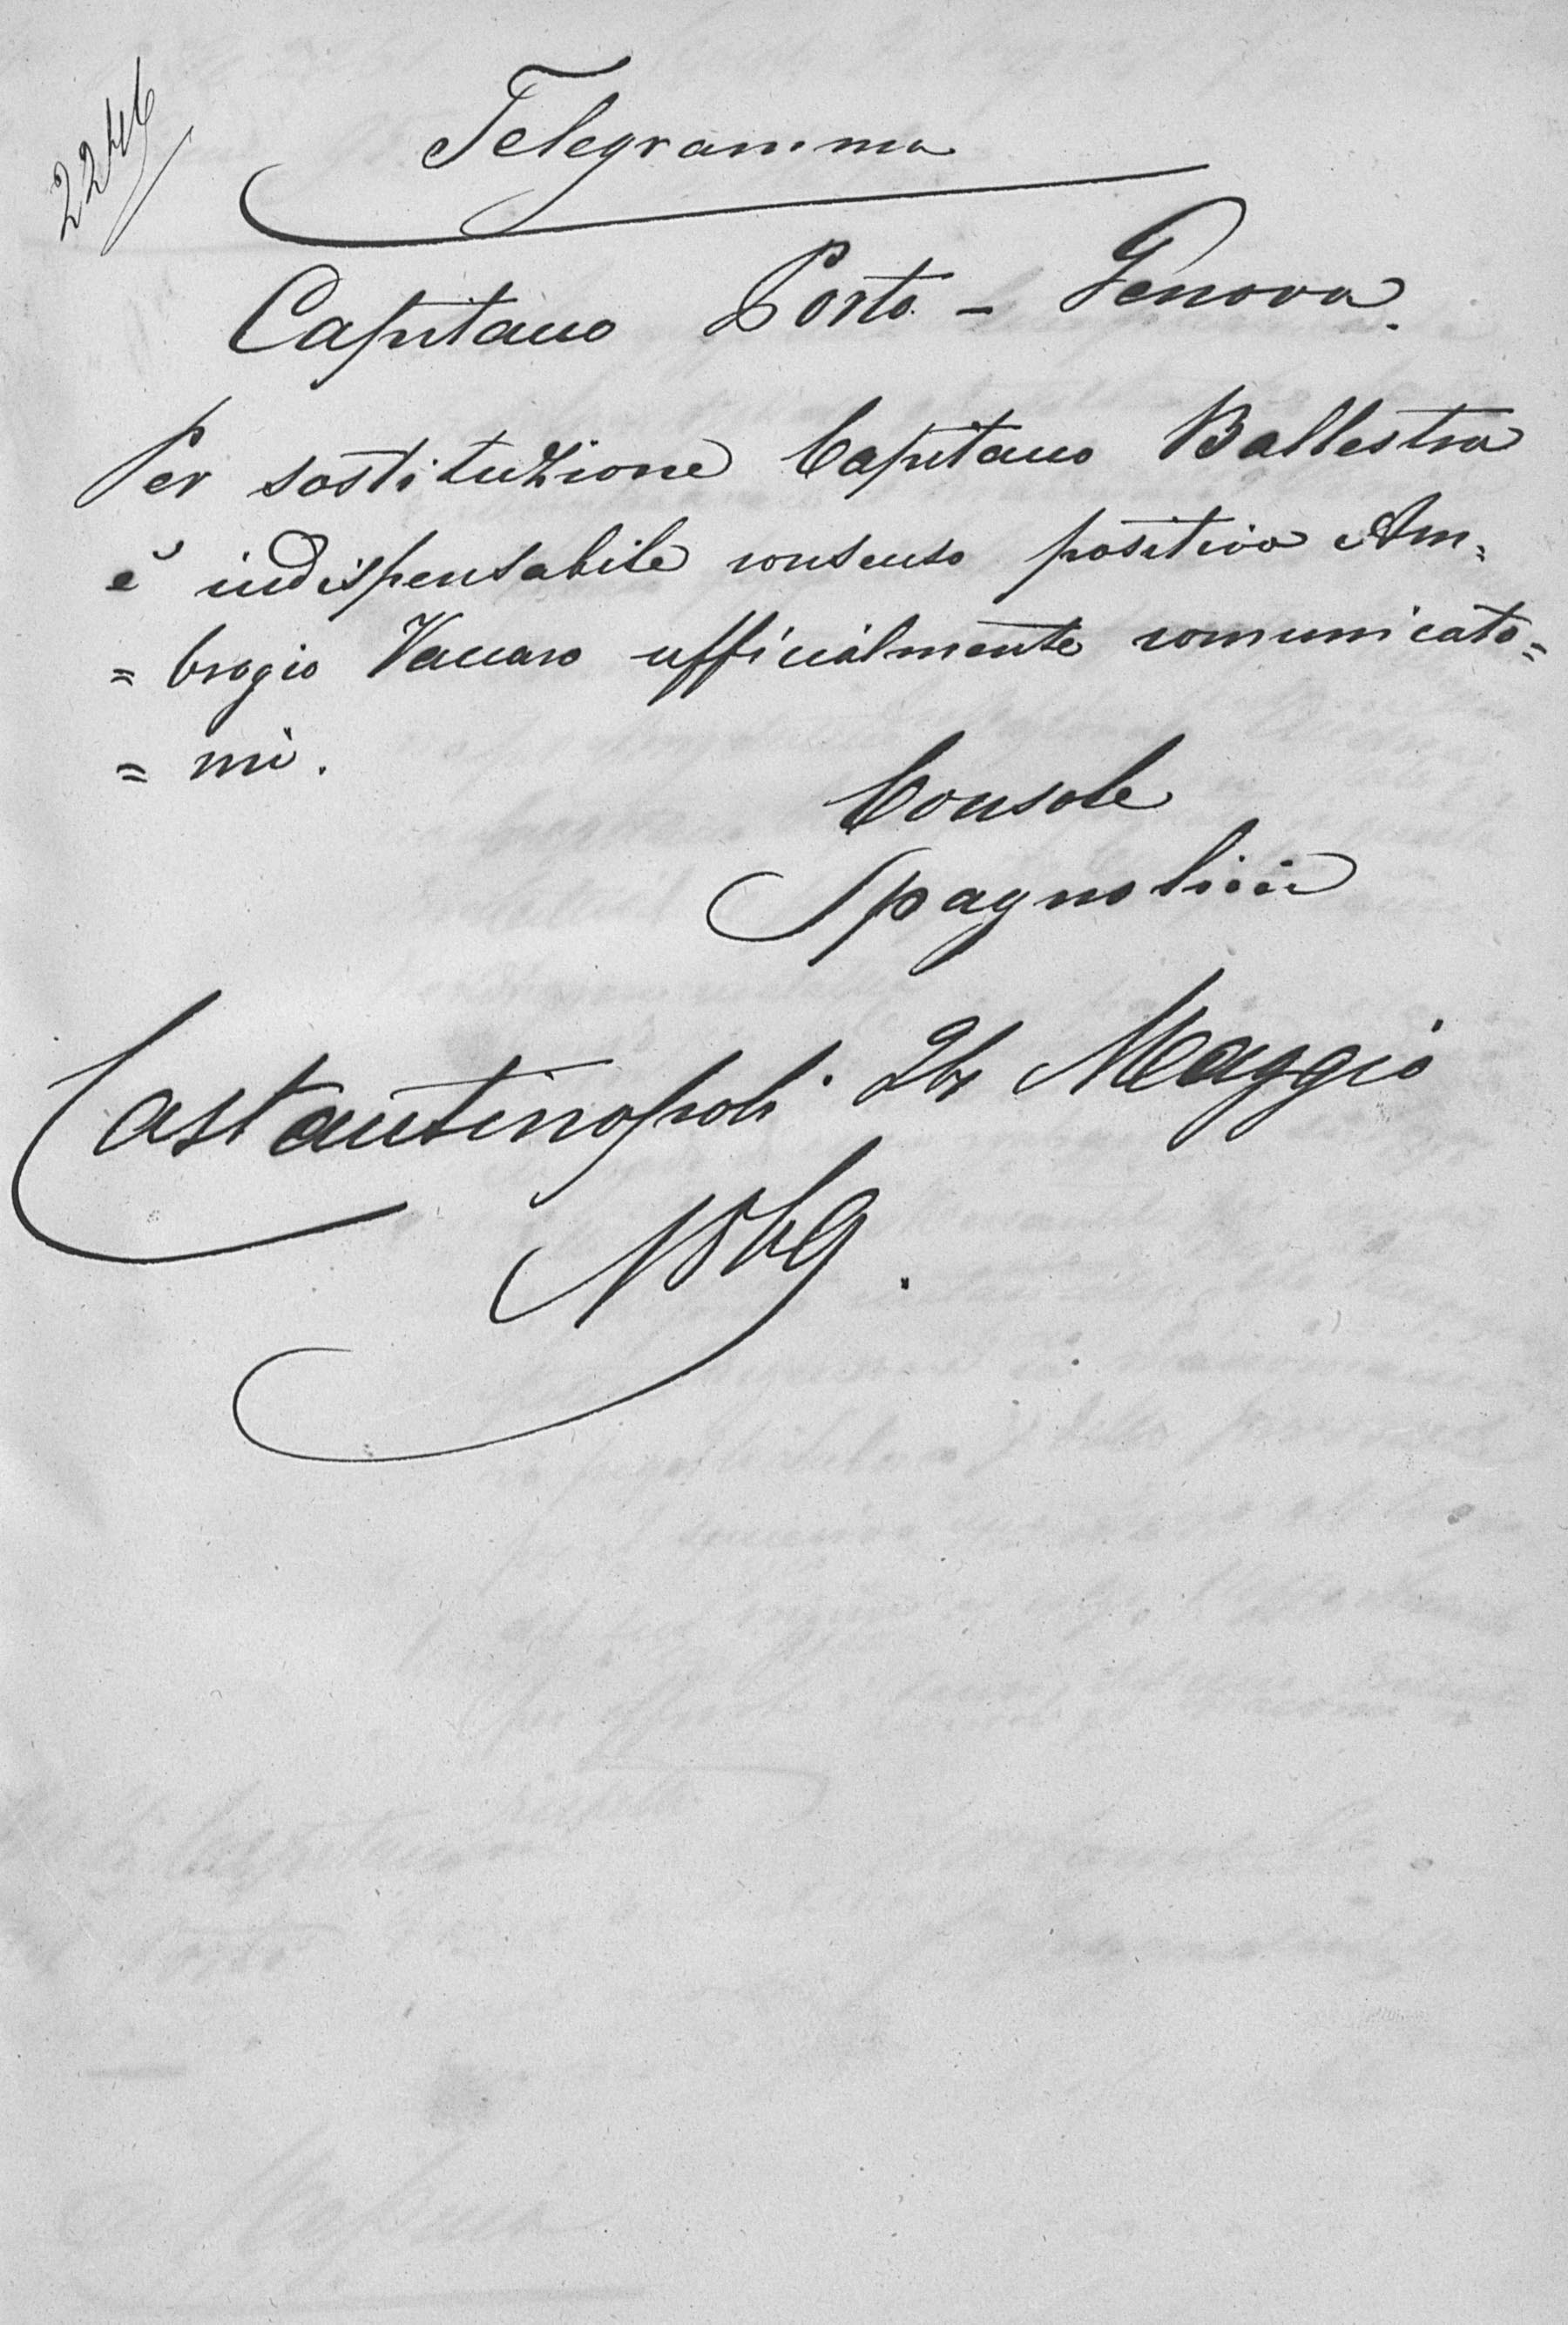 Telegramma
Capitano Porto - Genova.
Per sostituzione Capitano Ballestra
è indispensabile consenso positivo Am=
= brogio Vaccaro ufficialmente comunicato=
= mi.
Console
Spagnolini
Costantinopoli 24 Maggio